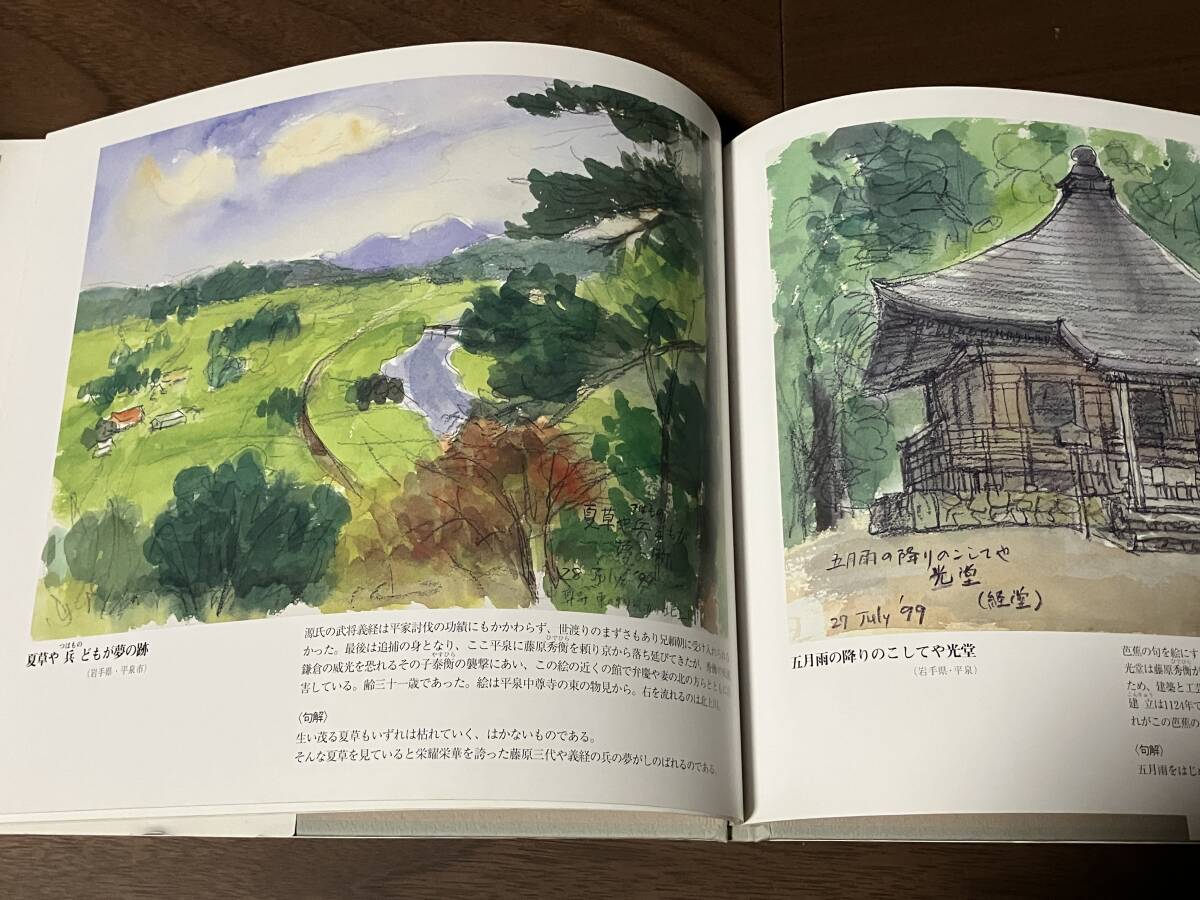 夏草や
兵どもが
夢の跡
28 July '99
夏草や 兵 どもが夢の跡
つはもの
（岩手県・平泉市）
源氏の武将義経は平家討伐の功績にもかかわらず、世渡りのまずさもあり兄頼朝に受け入れられな
かった。最後は追捕の身となり、ここ平泉に藤原秀衡を頼り京から落ち延びてきたが、秀衡の
ひでひら
鎌倉の威光を恐れるその子泰衡の襲撃にあい、この絵の近くの館で弁慶や妻の北の方らとともに
やすひら
害している。齢三十一歳であった。絵は平泉中尊寺の東の物見から。右を流れるのは北上川。
〈句解〉
生い茂る夏草もいずれは枯れていく、はかないものである。
そんな夏草を見ていると栄耀栄華を誇った藤原三代や義経の兵の夢がしのばれるのである。
五月雨の降りのこしてや
光堂
（経堂）
27 July '99
五月雨の降りのこしてや光堂
（岩手県・平泉）
芭蕉の句を絵にす
光堂は藤原秀衡が
ひでひら
ため、建築と工芸
こんりゅう
建立は1124年で
れがこの芭蕉の
〈句解〉
五月雨をはじ